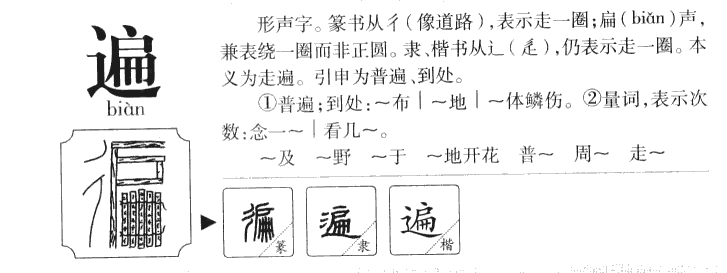 遍
biàn
形声字。篆书从彳(像道路),表示走一圈;扁(biǎn)声,
兼表绕一圈而非正圆。隶、楷书从辶(辵),仍表示走一圈。本
义为走遍。引申为普遍、到处。
①普遍;到处:~布|~地|~体鳞伤。②量词,表示次
数:念一~|看几~。
~及 ~野 ~于 ~地开花 普~ 周~ 走~
徧 篆
遍 隶
遍 楷